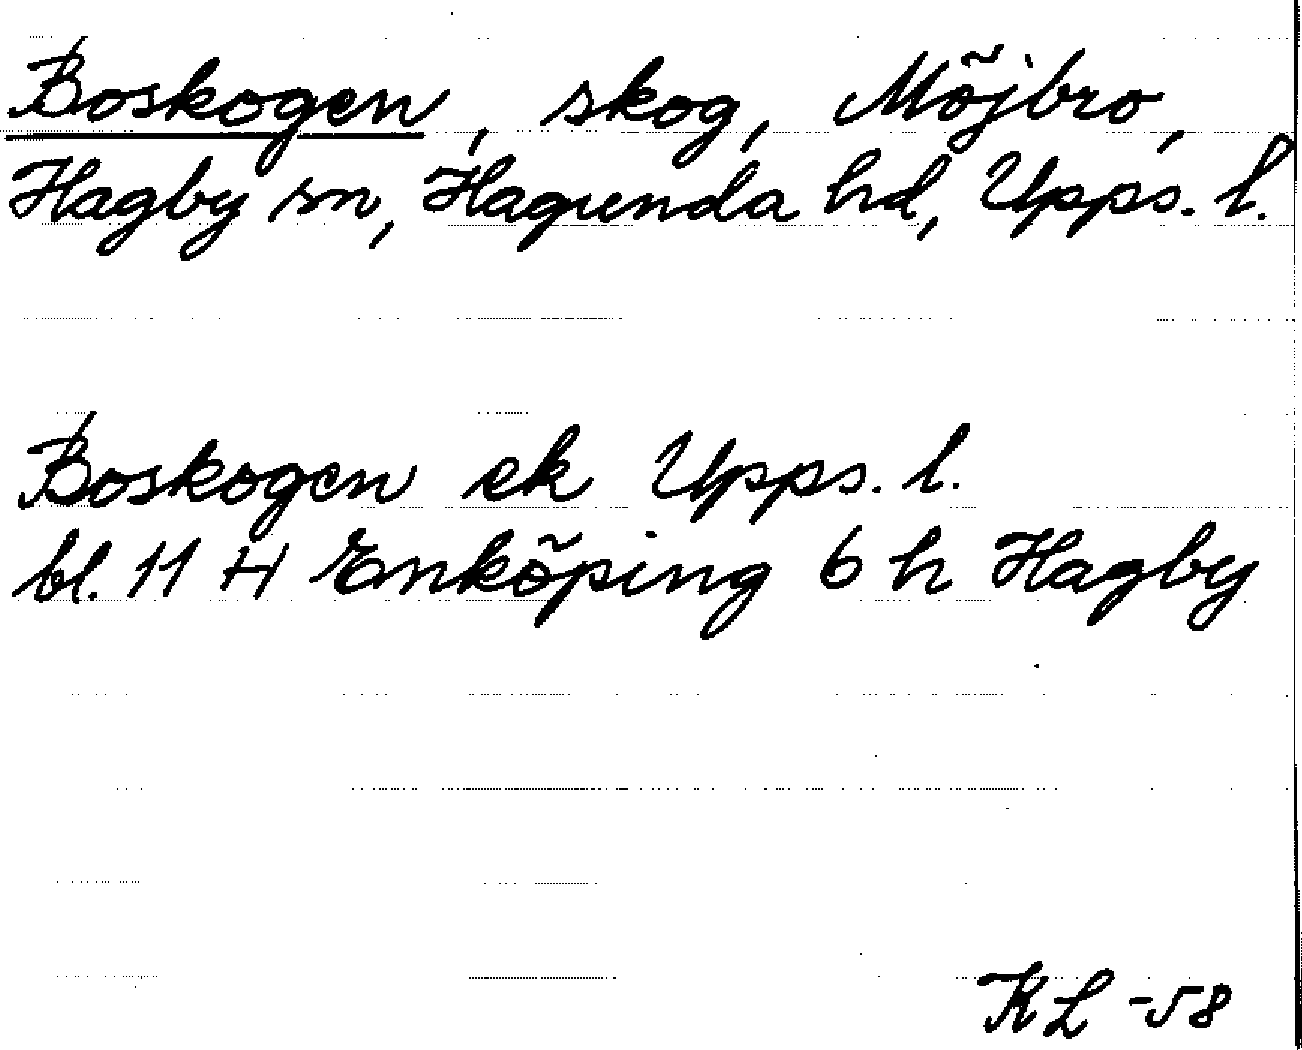 Boskogen, skog, Möjbro,
Hagby sn, Hagunda hd, Upps. l.
Boskogen ek Upps. l.
bl. 11 H Enköping 6 h Hagby
KL -58